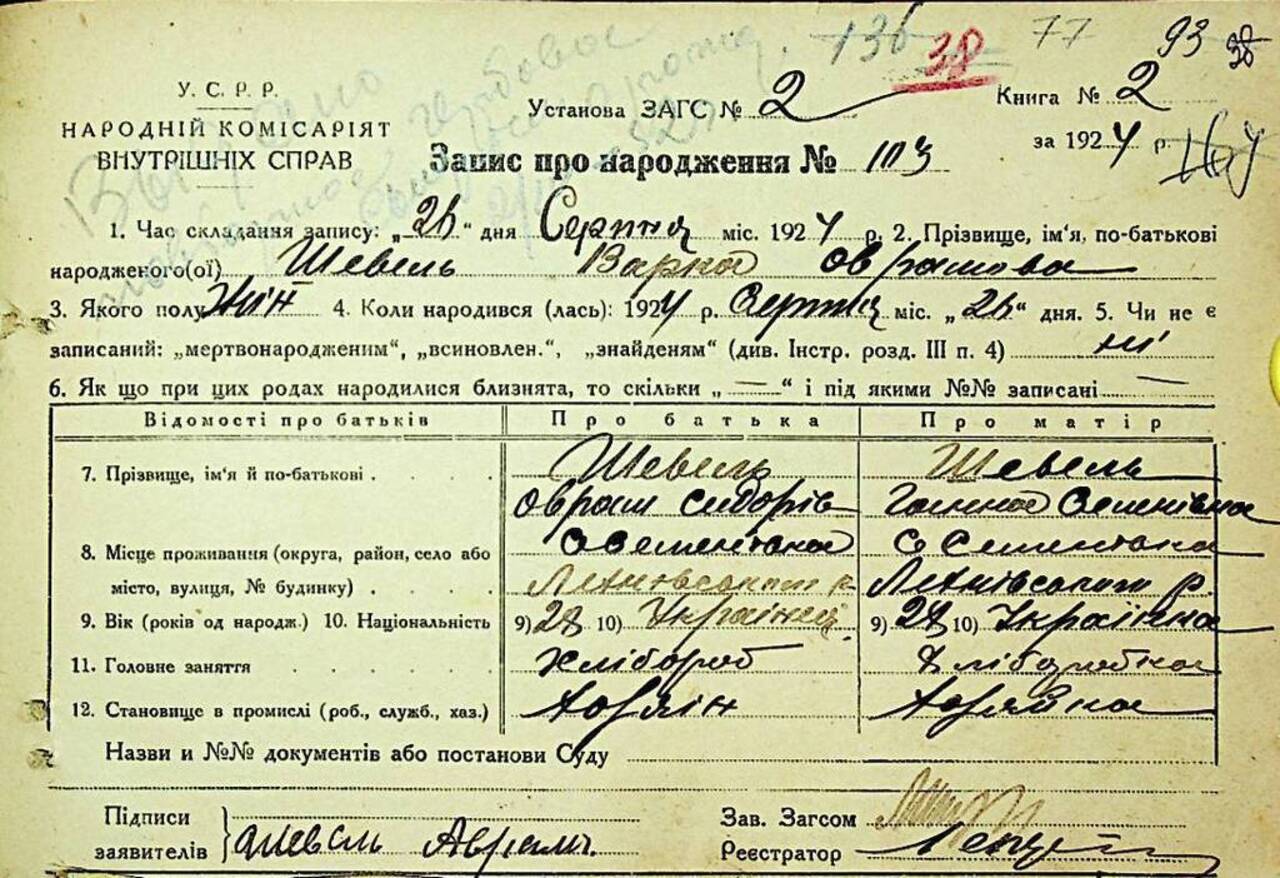 136 38 77 93 38
У. С. Р. Р.
Установа ЗАГС № 2
Книга № 2
НАРОДНІЙ КОМІСАРІЯТ
ВНУТРІШНІХ СПРАВ
за 1924 р.
Запис про народження № 103
1. Час складання запису: „26“ дня Серпня міс. 1924 р. 2. Прізвище, ім'я, по-батькові
народженого(ої) Шевель Варка Оврамова
3. Якого полу жін 4. Коли народився (лась): 1924 р. Серпня міс. „26“ дня. 5. Чи не є
записаний: „мертвонародженим“, „всиновлен.“, „знайденям“ (див. Інстр. розд. III п. 4) ні
6. Як що при цих родах народилися близнята, то скільки „ — “ і під якими №№ записані —
Відомості про батьків Про батька Про матір
7. Прізвище, ім'я й по-батькові . . . . Шевель Шевель
Оврам Сидорів Ганна Семенівна
8. Місце проживання (округа, район, село або С Семенівка С Семенівка
місто, вулиця, № будинку) . . . . р. р.
9. Вік (років од народж.) 10. Національність 9) 28 10) Українец 9) 28 10) Українка
11. Головне заняття . . . . . Хлібороб Хліборобка
12. Становище в промислі (роб., служб., хаз.)
Назви и №№ документів або постанови Суду
Підписи
заявителів Шевель Аврам
Зав. Загсом
Реєстратор